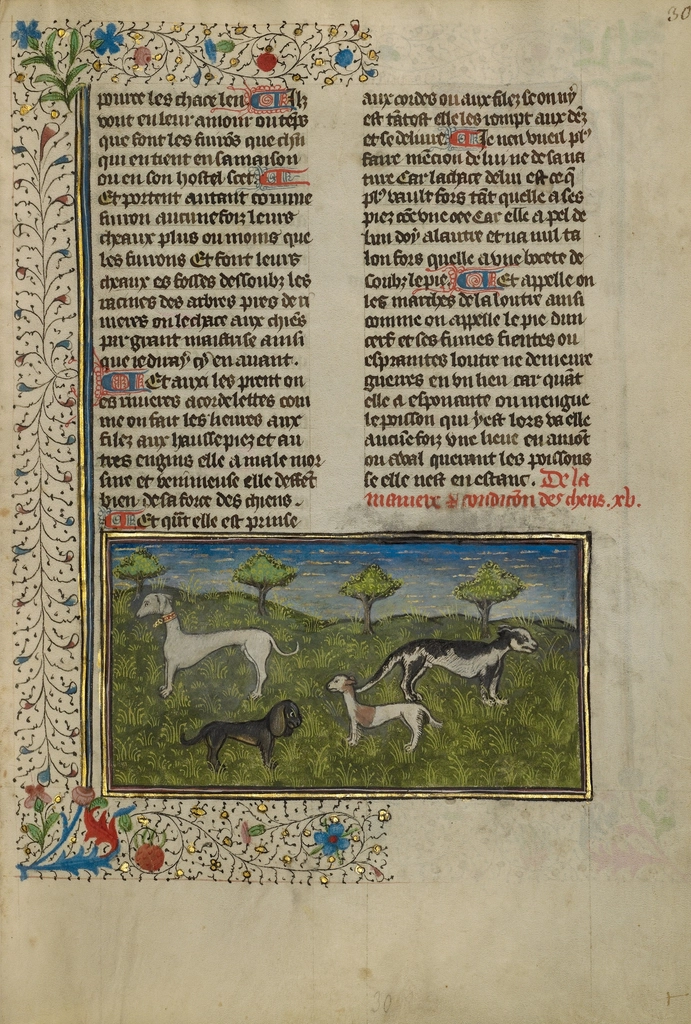 30
pource les chace leu Ilz
vont en leur amour ou teps
que font les furons que chũ
qui en tient en sa maison
ou en son hostel scet.
Et portent autant comme
furon aucune foiz leurs
cheaux plus ou moins que
les furons Et font leurs
cheaux es fosses dessoubz les
racines des arbres pres de ri
uieres on le chace aux chiẽs
par grant maistrise ainsi
que ie diray cy en auant.
Et aux les prent on
es riuieres a cordelettes com
me on fait les lieures aux
filez aux haussepiez et au
tres engins elle a male mor
sure et venimeuse elle deffet
bien de sa force des chiens.
Et qũt elle est prinse
aux cordes ou aux filez se on ny
est tãtost elle les rompt aux dẽz
et se deliure. Je nen vueil plꝰ
faire mẽcion de lui ne de sa na
ture Car la chace de lui est ce q̃
plꝰ vault fors tãt quelle a ses
piez cõe vne oee Car elle a pel de
lun doy a lautre et na nul ta
lon fors quelle a vne bocete de
soubz le pie. Et appelle on
les marches de la loutre ainsi
comme on appelle le pie dun
cerf et ses fumes fientes ou
espraintes loutre ne demeure
gueires en vn lieu car quãt
elle a espouante ou mengue
le poisson qui y est lors va elle
aucũe foiz vne lieue en amõt
ou aual querant les poissons
se elle nest en estanc. De la
maniere & condicõn des chens. xv.
30